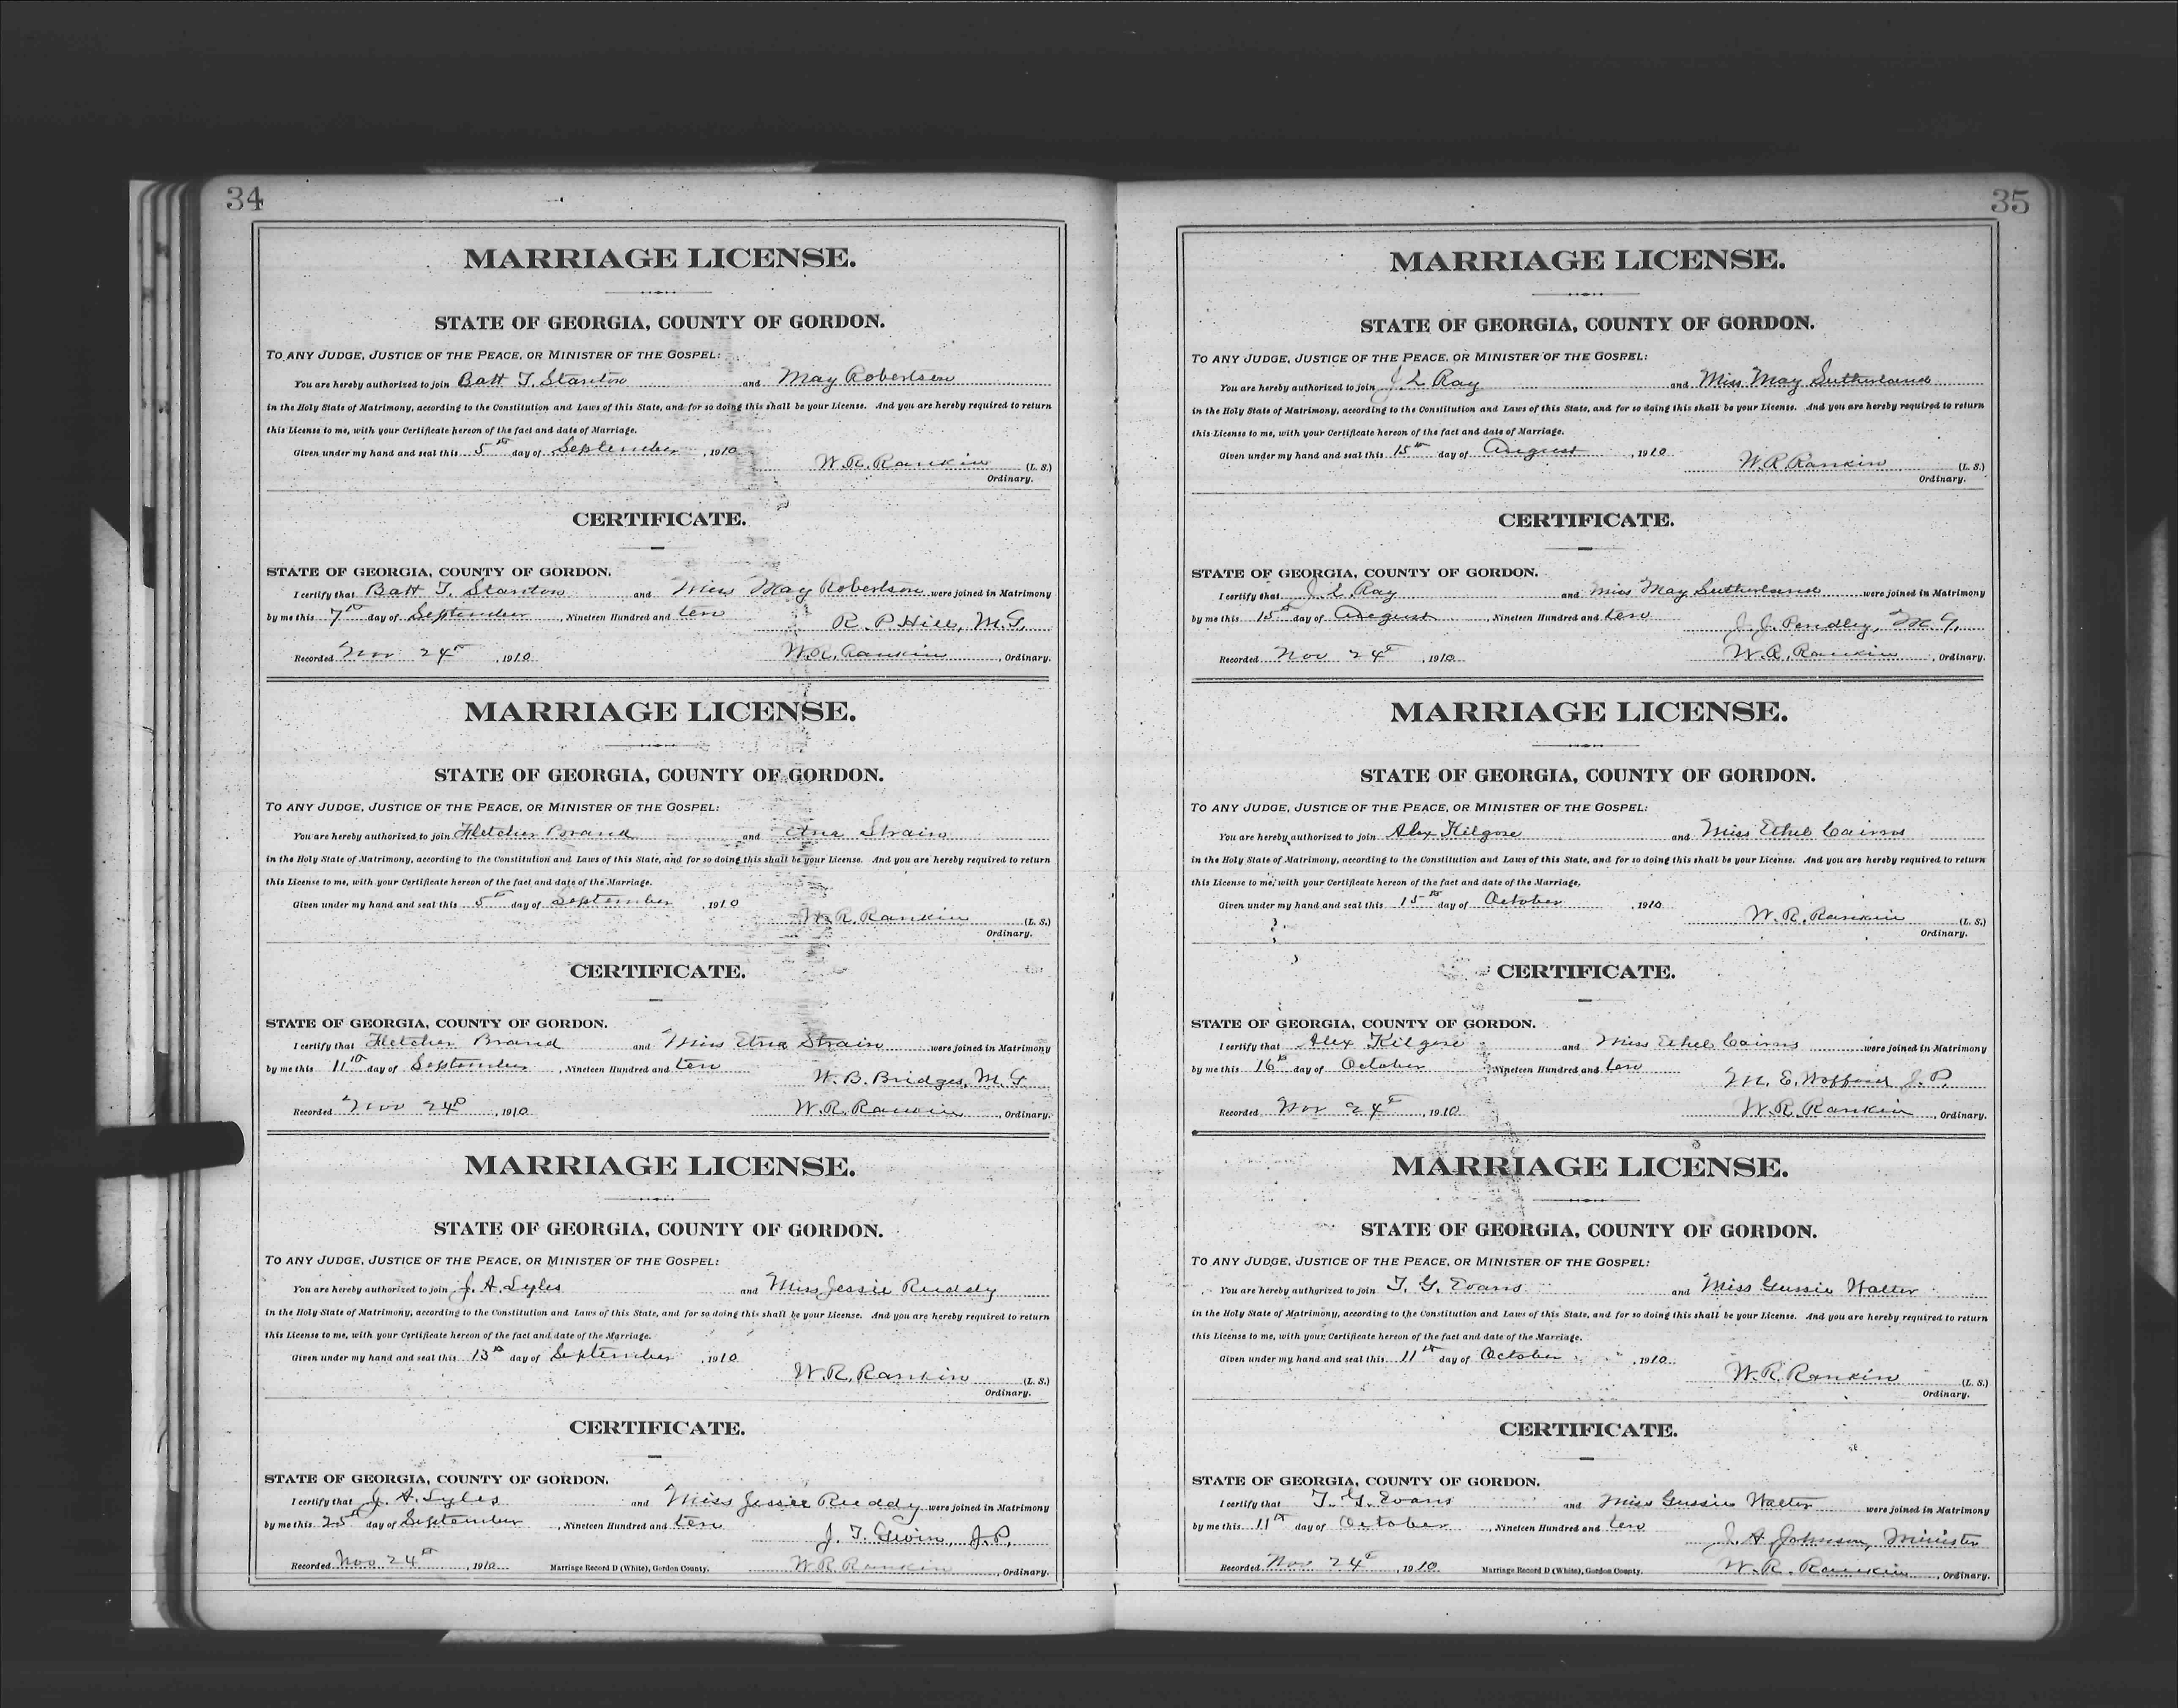 34
MARRIAGE LICENSE.
STATE OF GEORGIA, COUNTY OF GORDON.
TO ANY JUDGE, JUSTICE OF THE PEACE, OR MINISTER OF THE GOSPEL:
You are hereby authorized to join Batt T. Stanton and May Robertson
in the Holy State of Matrimony, according to the Constitution and Laws of this State, and for so doing this shall be your License. And you are hereby required to return
this License to me, with your Certificate hereon of the fact and date of Marriage.
Given under my hand and seal this 5th day of September, 1910
W. R. Rankin (L. S.)
Ordinary.
CERTIFICATE.
STATE OF GEORGIA, COUNTY OF GORDON.
I certify that Batt T. Stanton and Miss May Robertson were joined in Matrimony
by me this 7th day of September, Nineteen Hundred and ten
R. P. Hill, M.G.
Recorded Nov 24th, 1910. W. R. Rankin, Ordinary.
MARRIAGE LICENSE.
STATE OF GEORGIA, COUNTY OF GORDON.
TO ANY JUDGE, JUSTICE OF THE PEACE, OR MINISTER OF THE GOSPEL:
You are hereby authorized to join Fletcher Brand and Etna Strain
in the Holy State of Matrimony, according to the Constitution and Laws of this State, and for so doing this shall be your License. And you are hereby required to return
this License to me, with your Certificate hereon of the fact and date of the Marriage.
Given under my hand and seal this 5th day of September, 1910
W. R. Rankin (L. S.)
Ordinary.
CERTIFICATE.
STATE OF GEORGIA, COUNTY OF GORDON.
I certify that Fletcher Brand and Miss Etna Strain were joined in Matrimony
by me this 11th day of September, Nineteen Hundred and ten
W. B. Bridges, M.G
Recorded Nov 24th, 1910. W. R. Rankin, Ordinary.
MARRIAGE LICENSE.
STATE OF GEORGIA, COUNTY OF GORDON.
TO ANY JUDGE, JUSTICE OF THE PEACE, OR MINISTER OF THE GOSPEL:
You are hereby authorized to join J. A. Lyles and Miss Jessie Ruddy
in the Holy State of Matrimony, according to the Constitution and Laws of this State, and for so doing this shall be your License. And you are hereby required to return
this License to me, with your Certificate hereon of the fact and date of the Marriage.
Given under my hand and seal this 13th day of September, 1910
W. R. Rankin (L. S.)
Ordinary.
CERTIFICATE.
STATE OF GEORGIA, COUNTY OF GORDON.
I certify that J. A. Lyles and Miss Jessie Ruddy were joined in Matrimony
by me this 25th day of September, Nineteen Hundred and ten
J. T. J.P.
Recorded Nov 24th, 1910. Marriage Record D (White), Gordon County. W. R. Rankin, Ordinary.
35
MARRIAGE LICENSE.
STATE OF GEORGIA, COUNTY OF GORDON.
TO ANY JUDGE, JUSTICE OF THE PEACE, OR MINISTER OF THE GOSPEL:
You are hereby authorized to join J. L Ray and Miss May Sutherland
in the Holy State of Matrimony, according to the Constitution and Laws of this State, and for so doing this shall be your License. And you are hereby required to return
this License to me, with your Certificate hereon of the fact and date of Marriage.
Given under my hand and seal this 15th day of August, 1910
W. R Rankin (L. S.)
Ordinary.
CERTIFICATE.
STATE OF GEORGIA, COUNTY OF GORDON.
I certify that J. L. Ray and Miss May Sutherland were joined in Matrimony
by me this 15th day of August, Nineteen Hundred and ten
J. J. Pendley, M G.
Recorded Nov 24th, 1910. W. R. Rankin, Ordinary.
MARRIAGE LICENSE.
STATE OF GEORGIA, COUNTY OF GORDON.
TO ANY JUDGE, JUSTICE OF THE PEACE, OR MINISTER OF THE GOSPEL:
You are hereby authorized to join Alex Kilgore and Miss Ethel Cairns
in the Holy State of Matrimony, according to the Constitution and Laws of this State, and for so doing this shall be your License. And you are hereby required to return
this License to me, with your Certificate hereon of the fact and date of the Marriage.
Given under my hand and seal this 15th day of October, 1910
W. R. Rankin (L. S.)
Ordinary.
CERTIFICATE.
STATE OF GEORGIA, COUNTY OF GORDON.
I certify that Alex Kilgore and Miss Ethel Cairns were joined in Matrimony
by me this 16th day of October, Nineteen Hundred and ten
M. E. Wofford J. P.
Recorded Nov 24th, 1910 W. R. Rankin, Ordinary.
MARRIAGE LICENSE.
STATE OF GEORGIA, COUNTY OF GORDON.
TO ANY JUDGE, JUSTICE OF THE PEACE, OR MINISTER OF THE GOSPEL:
You are hereby authorized to join T. G. Evans and Miss Gussie Walter
in the Holy State of Matrimony, according to the Constitution and Laws of this State, and for so doing this shall be your License. And you are hereby required to return
this License to me, with your Certificate hereon of the fact and date of the Marriage.
Given under my hand and seal this 11th day of October, 1910.
W. R. Rankin (L. S.)
Ordinary.
CERTIFICATE.
STATE OF GEORGIA, COUNTY OF GORDON.
I certify that T. G. Evans and Miss Gussie Walter were joined in Matrimony
by me this 11th day of October, Nineteen Hundred and ten
J. A Johnson, Minister
Recorded Nov 24th, 1910. Marriage Record D (White), Gordon County. W. R. Rankin, Ordinary.